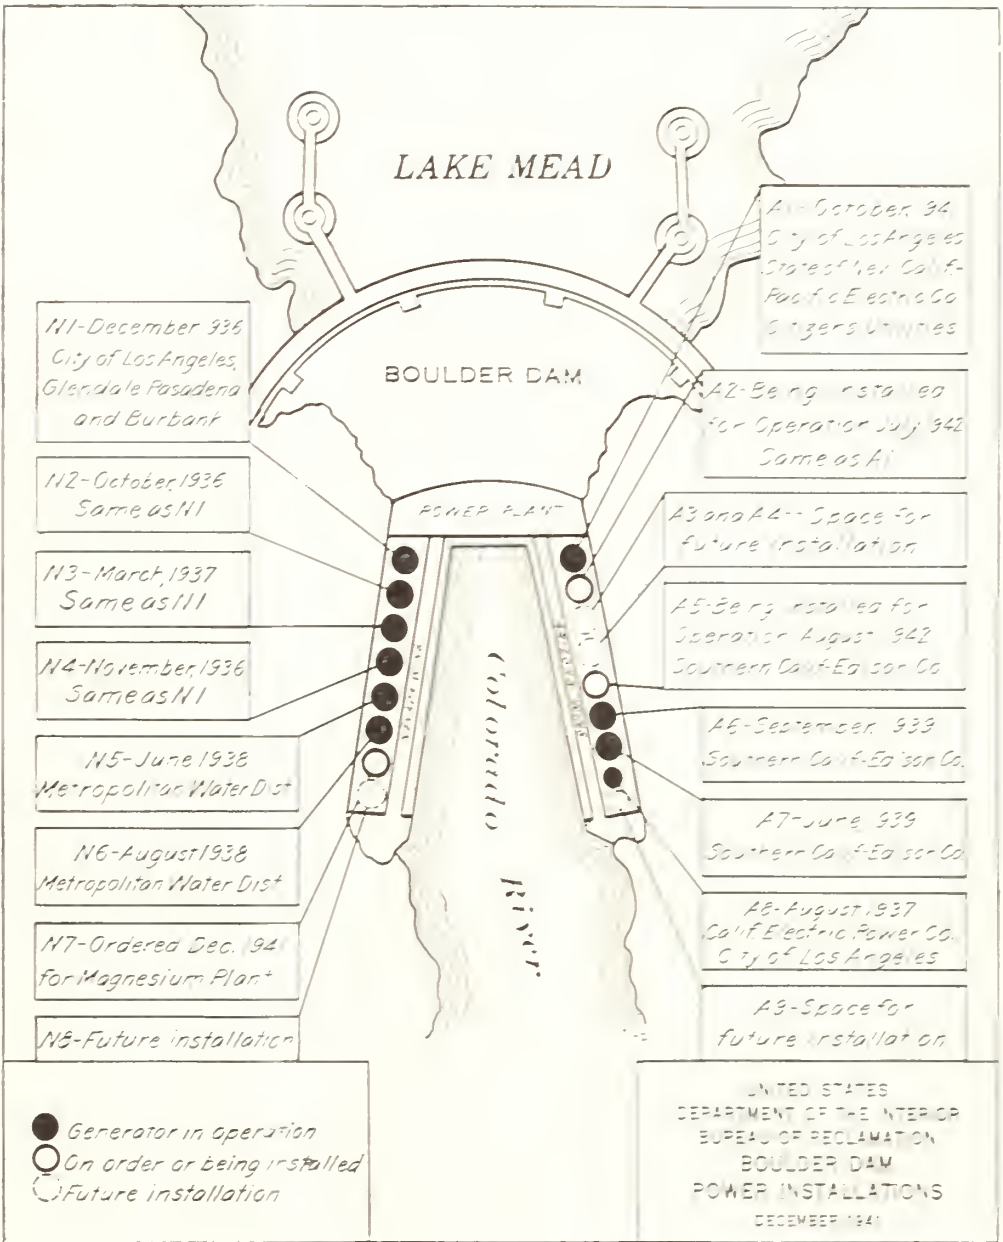 LAKE MEAD
BOULDER DAM
POWER PLANT
Colorado
River
N1-December 936
City of Los Angeles,
Glendale Pasadena
and Burbank
N2-October, 1936
Same as N1
N3-March, 1937
Same as N1
N4-November, 1936
Same as N1
N5-June 1938
Metropolitan Water Dist
N6-August 1938
Metropolitan Water Dist
N7-Ordered Dec. 194
for Magnesium Plant
N8-Future installation
A1-October, 94
City of Los Angeles
State of Nev Calif-
Pacific Electric Co
Citizens Utilities
A2-Being installed
for Operation July 942
Same as A1
A3 and A4-- Space for
future installation
A5-Being installed for
Operation August 942
Southern Calif-Edison Co
A6-September, 939
Southern Calif-Edison Co.
A7-June, 939
Southern Calif-Edison Co
A8-August, 1937
Calif. Electric Power Co.
City of Los Angeles
A9-Space for
future installation
Generator in operation
On order or being installed
Future installation
UNITED STATES
DEPARTMENT OF THE INTERIOR
BUREAU OF RECLAMATION
BOULDER DAM
POWER INSTALLATIONS
DECEMBER 1941